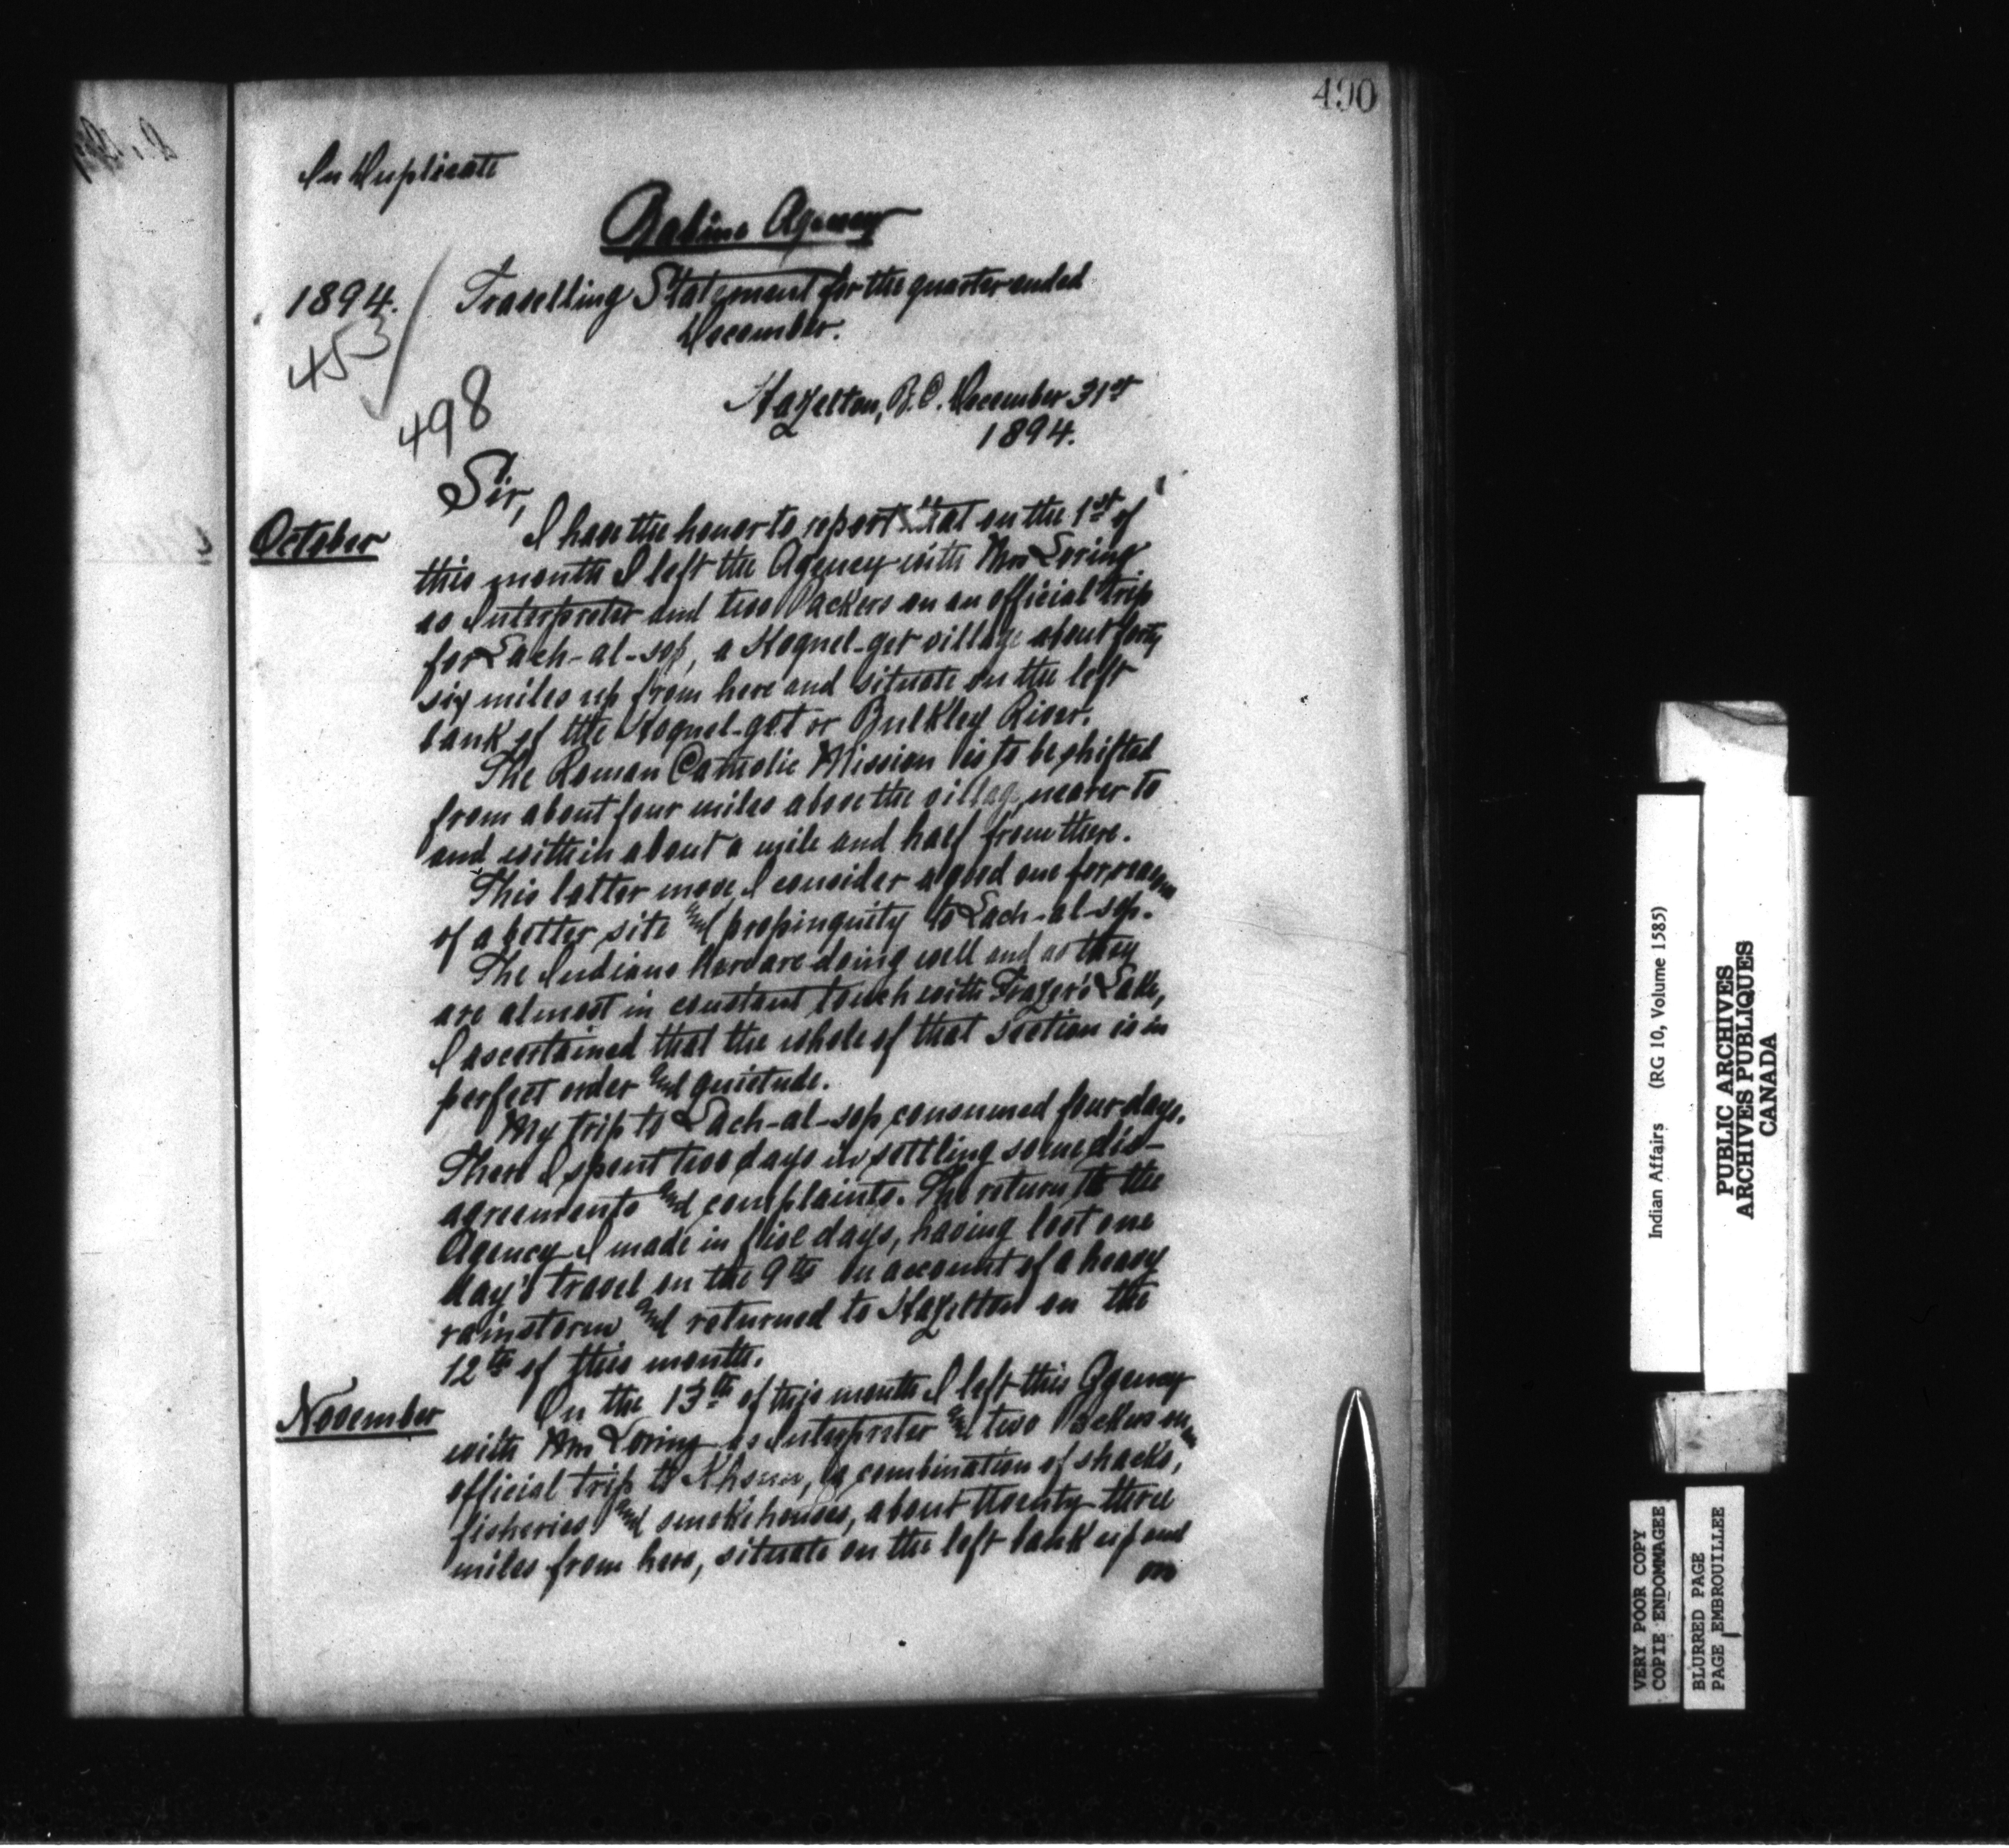 490
In Duplicate
Babine Agency
1894. Travelling Statement for the quarter ended
December.
453
498
Hazelton, B.C. December 31st
1894.
Sir,
October
I have the honor to report that on the 1st of
this month I left the Agency with Mrs Loring
as Interpreter and two Packers on an official trip
for Lach-al-sop, a Hoquel-get village about forty
six miles up from here and situate on the left
bank of the Hoquel-get or Bulkley River.
The Roman Catholic Mission is to be shifted
from about four miles above the village, nearer to
and within about a mile and half from there.
This latter move, I consider a good one for reason
of a better site and propinquity to Lach-al-sop.
The Indians here are doing well and as they
are almost in constant touch with Frazer's Lake,
I ascertained that the whole of that section is in
perfect order and quietude.
My trip to Lach-al-sop consumed four days.
There I spent two days in settling some dis-
agreements and complaints. The return to the
Agency I made in five days, having lost one
day's travel on the 9th on account of a heavy
rainstorm and returned to Hazelton on the
12th of this month.
November
On the 13th of this month I left this Agency
with Mrs Loring as Interpreter and two Packers on an
official trip to a combination of shacks,
fisheries and smokehouses, about twenty-three
miles from here, situate on the left bank up and
on
Indian Affairs (RG 10, Volume 1585)
PUBLIC ARCHIVES
ARCHIVES PUBLIQUES
CANADA
VERY POOR COPY
COPIE ENDOMMAGEE
BLURRED PAGE
PAGE EMBROUILLEE